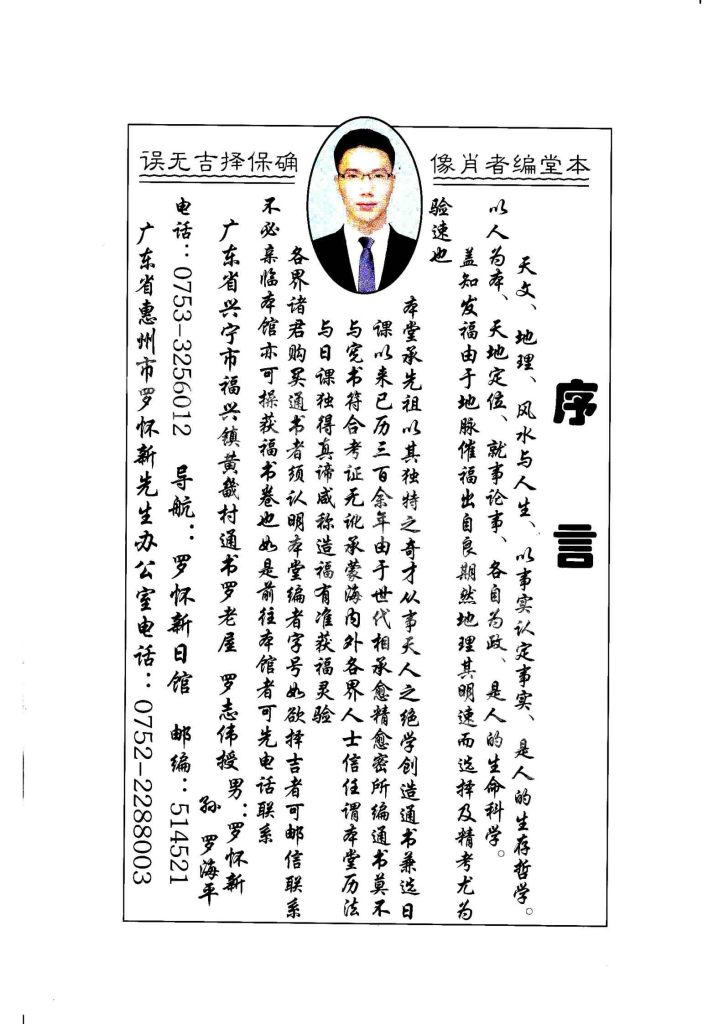 序言
本堂编者肖像
确保择吉无误
天文、地理、风水与人生、以事实认定事实、是人的生存哲学。
以人为本、天地定位、就事论事、各自为政、是人的生命科学。
盖知发福由于地脉催福出自良期然地理其明速而选择及精考尤为
验速也
本堂承先祖以其独特之奇才从事天人之绝学创造通书兼选日
课以来已历三百余年由于世代相承愈精愈密所编通书莫不
与宪书符合考证无讹承蒙海内外各界人士信任谓本堂历法
与日课独得真谛咸称造福有准获福灵验
各界诸君购买通书者须认明本堂编者字号如欲择吉者可邮信联系
不必亲临本馆亦可操获福书卷也如是前往本馆者可先电话联系
广东省兴宁市福兴镇黄畿村通书罗老屋 罗志伟授 男：罗怀新
孙 罗海平
电话：0753-3256012 导航：罗怀新日馆 邮编：514521
广东省惠州市罗怀新先生办公室电话：0752-2288003